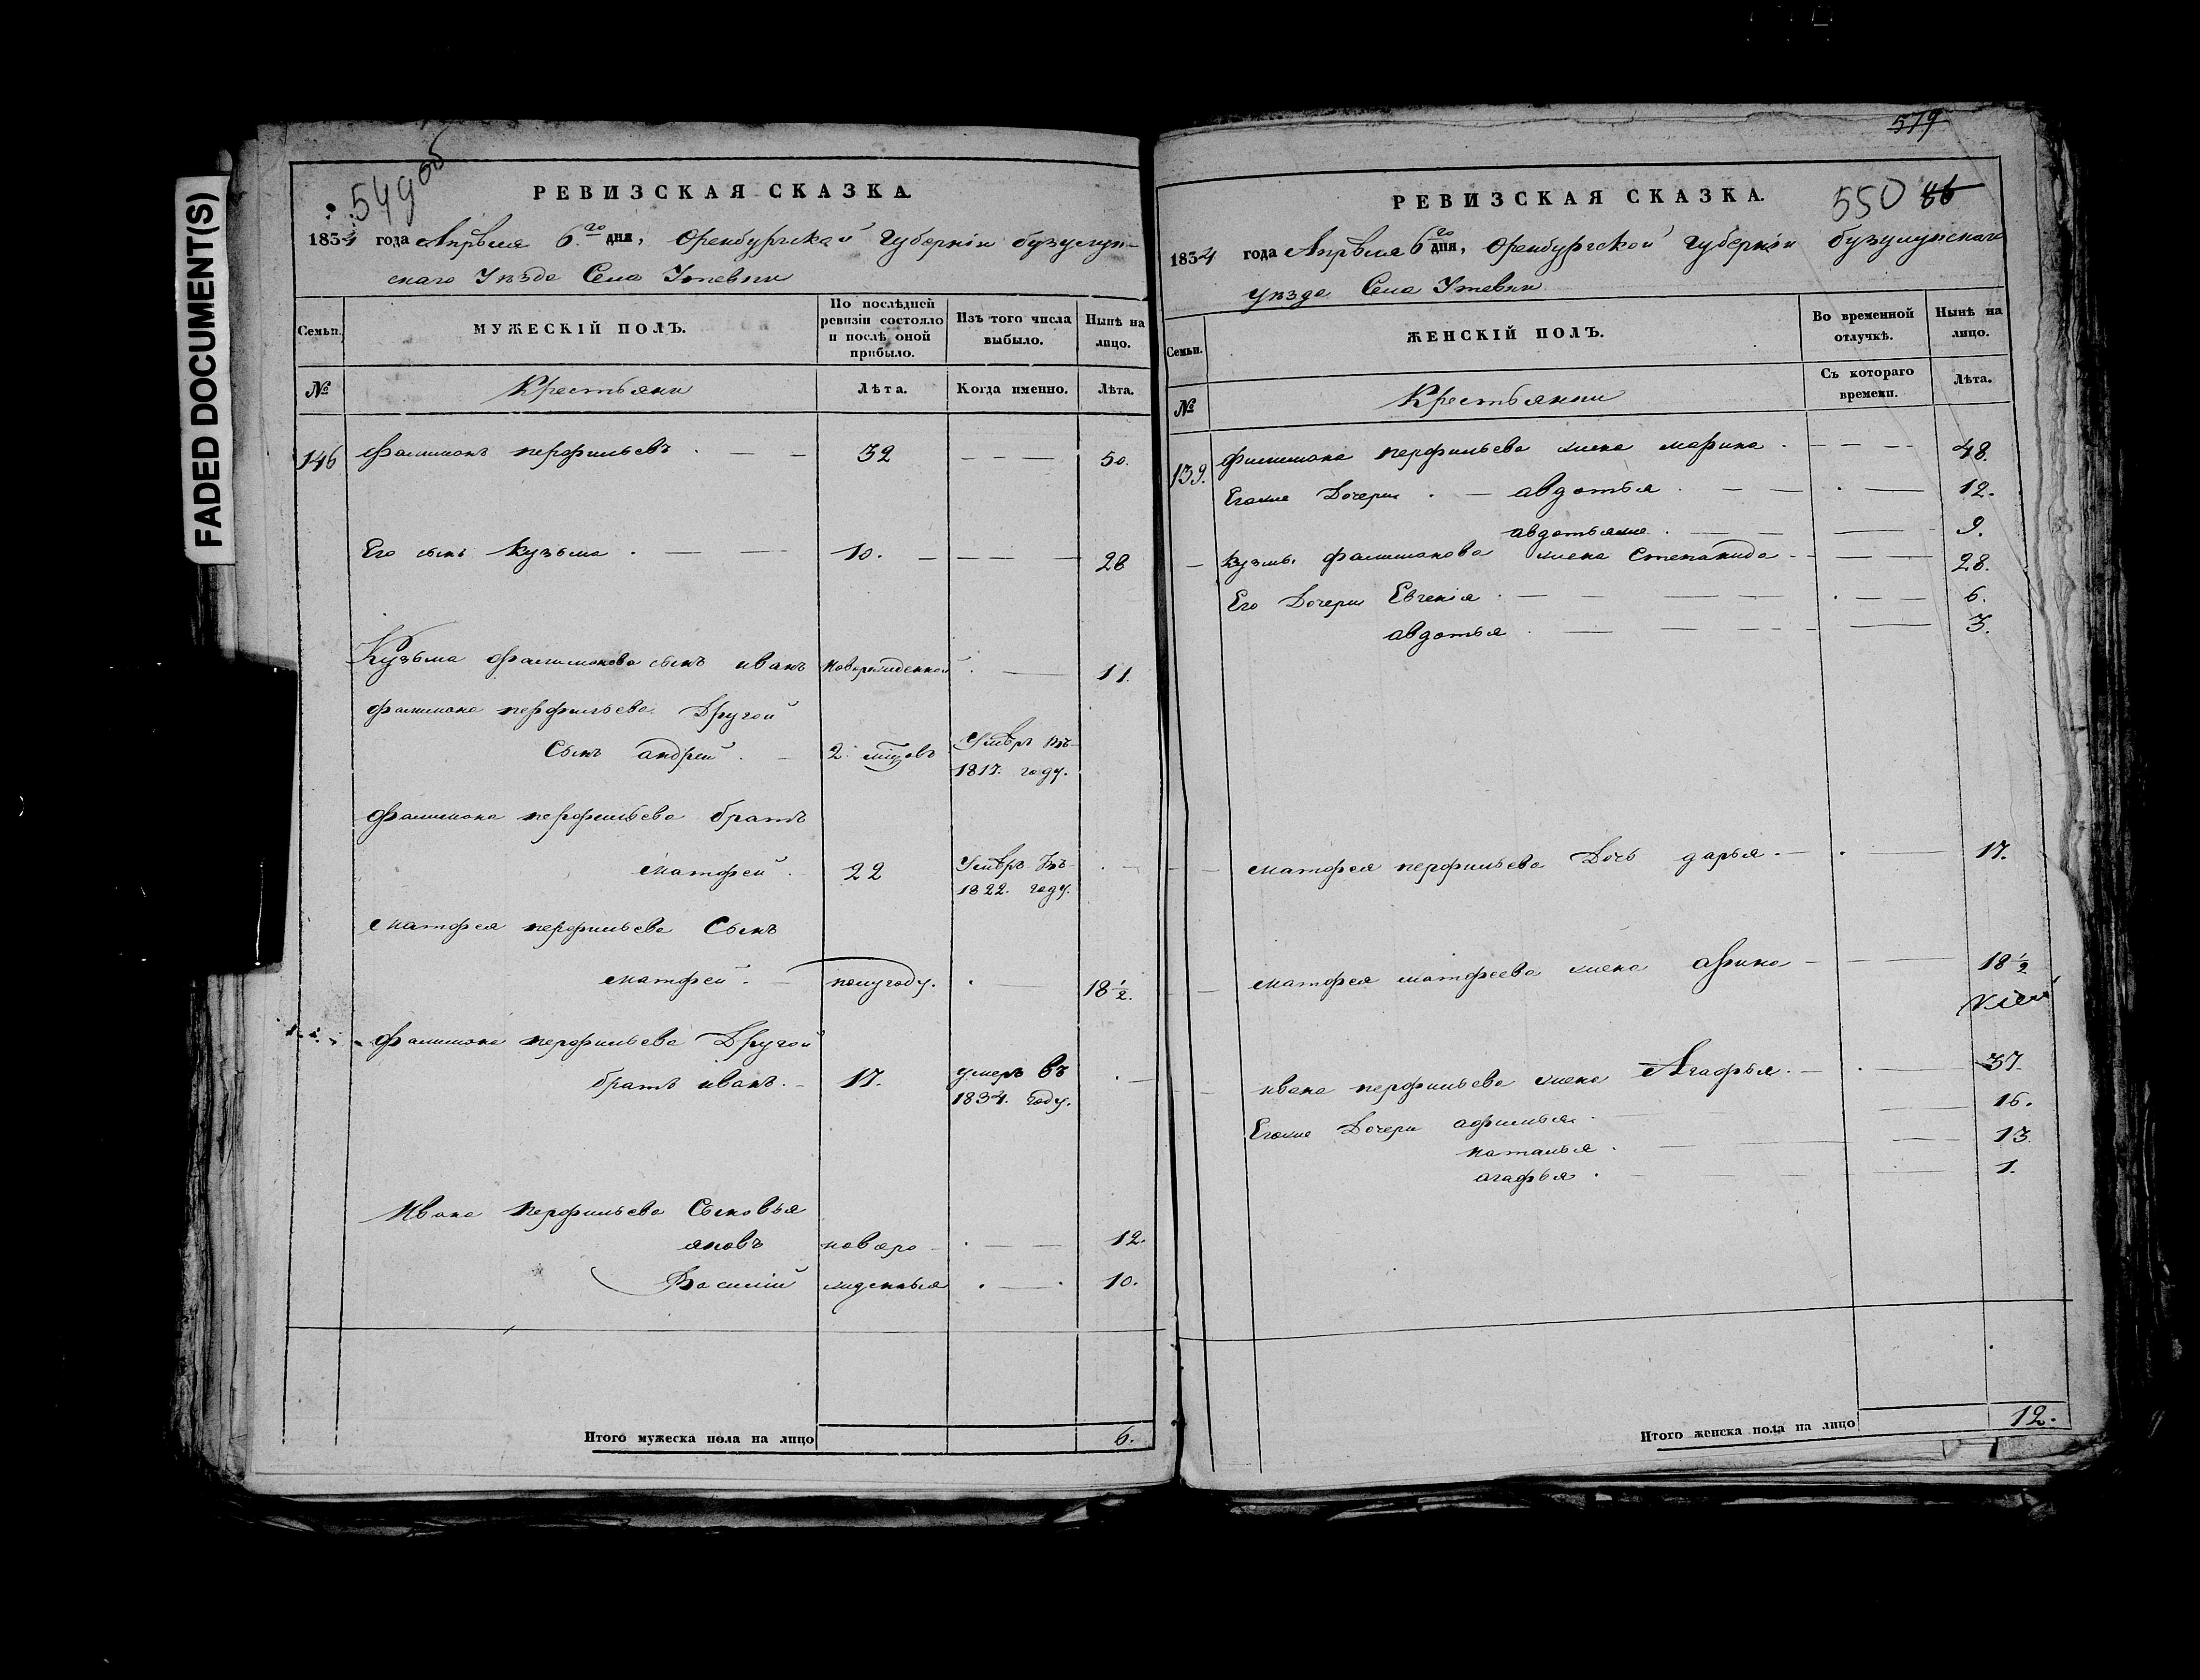 FADED DOCUMENT(S)
549 об
РЕВИЗСКАЯ СКАЗКА.
1834 года Апрѣля 6го дня, Оренбургской Губерніи бузулук-
скаго Уѣзда Села Утевки
Семьи.
МУЖЕСКІЙ ПОЛЪ.
По послѣдней ревизіи состояло и послѣ оной прибыло.
Изъ того числа выбыло.
Нынѣ на лицо.
№
Крестьяни
Лѣта.
Когда именно.
Лѣта.
146 Филимонъ перфильевъ . — — 32 — — — 50.
Его сынъ Кузьма . — — 10. — — — — 28
Кузьма филимонова сынъ иванъ новорожденной . — 11.
филимона перфильева Другой
Сынъ андрей . — 2 мѣсцовъ Умѣръ въ
1817. году.
филимона перфильева братъ
матфей . 22 Умѣръ въ . —
1822. году.
матфея перфильева Сынъ
матфей . — полугоду. . — 18 1/2.
филимона перфильева Другой
братъ иванъ. — 17. умеръ въ . —
1834. году.
Ивана перфильева Сыновья
яковъ новоро . — — 12.
Василий жденныя . — . 10.
Итого мужеска пола на лицо 6.
579
550 86
РЕВИЗСКАЯ СКАЗКА.
1834 года Апрѣля 6го дня, Оренбургской Губерніи бузулукскаго
уѣзда Села Утевки
Семьи.
ЖЕНСКІЙ ПОЛЪ.
Во временной отлучкѣ.
Нынѣ на лицо.
№
Крестьянки
Съ котораго времени.
Лѣта.
139. Филимона перфильева жена марина . — — — 48.
Егожие Дочери . — авдотья . — — . — 12.
авдотьяже . — — — 9.
— Кузмы филимонова жена Степанида — — — 28.
Его Дочери Евгенія . — — — — . — 6.
авдотья . — — — — — 3.
— матфея перфильева Дочь дарья . — . — 17.
— матфея матфеева жена арина — — — 18 1/2
— ивана перфильева жена Агафья . — . — 37.
Егожие Дочери афимья . — — 16.
наталья . — — — 13.
агафья . — — — 1.
Итого женска пола на лицо 12.